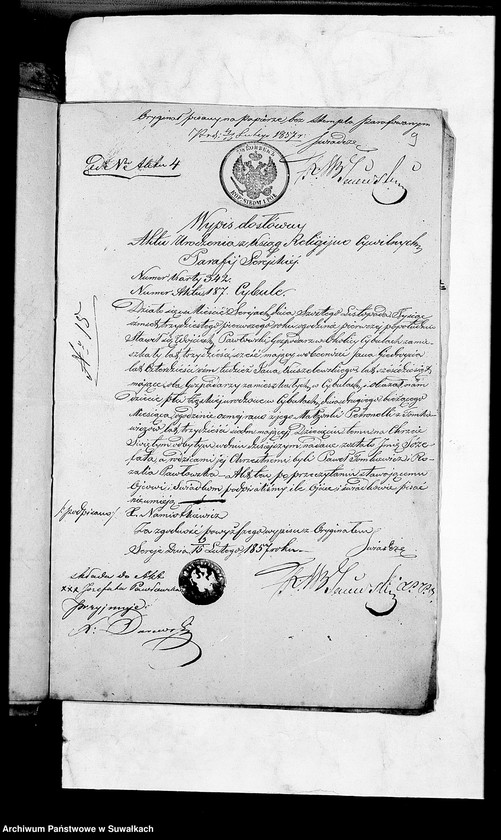 Oryginał pisany na papierze bez stempla szarfowanym
9
Lutego 1857 r. Świadczę
Do Nr Aktu 4
Wypis dosłowny
Aktu Urodzenia z Ksiąg Religijno Cywilnych
Parafij Serejskiej
Numer Karty 342.
Numer Aktu 187. Cybule.
Działo się w Mieście Serejach dnia Szóstego Listopada Tysiąc
trzydziestego pierwszego roku o godzinie pierwszej po południu
Stawił się Wojciech Pawłowski Gospodarz w Okolicy Cybulach zamie
szkały lat trzydzieści sześć mający w obecności Jana
lat tudzież Jana lat sześćdziesiąt
mającego Gospodarzy zamieszkałych w Cybulach, i okazał nam
Dziecie płci Męskiej urodzone w Cybulach, dnia drugiego bieżącego
Miesiąca, o godzinie z jego Małżonki Petroneli z Tomke
wiczów lat trzydzieści siedm mającej. Dziecięciu temu na Chrzcie
Świętym odbytym w dniu dzisiejszym nadane zostało Imię Józe
fata, a rodzicami jej Chrzestnemi byli Paweł Tomkiewicz i Ro
zalia Pawłowska. Akt ten po przeczytaniu stawającemu
Ojcowi i Świadkom podpisaliśmy ile Ojciec i świadkowie pisać
nieumieją
/podpisano/ X. Namiotkiewicz
Za zgodność powyższego wypisu z Oryginałem
Sereje dnia 16 Lutego 1857 roku. Świadczę
Nr 15
składa do Akt
xxx Jozefata Pawłowska
Przyjmuje
Archiwum Państwowe w Suwałkach